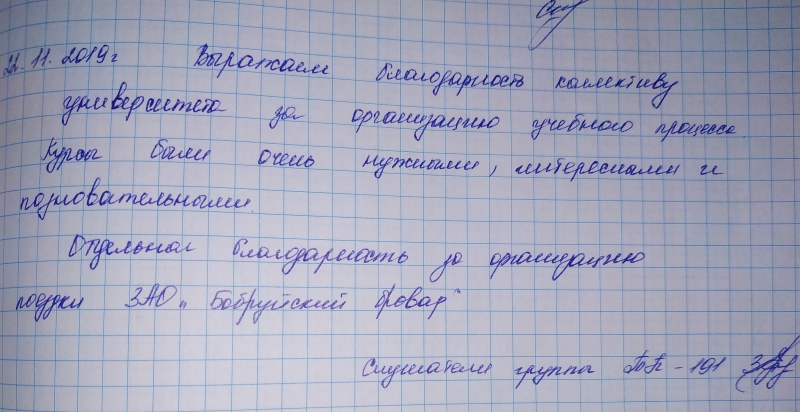 22.11.2019г Выражаем благодарность коллективу
университета за организацию учебного процесса.
Курсы были очень нужными, интересными и
познавательными.
Отдельная благодарность за организацию
поездки ЗАО „Бобруйский бровар"
Слушатели группы -191